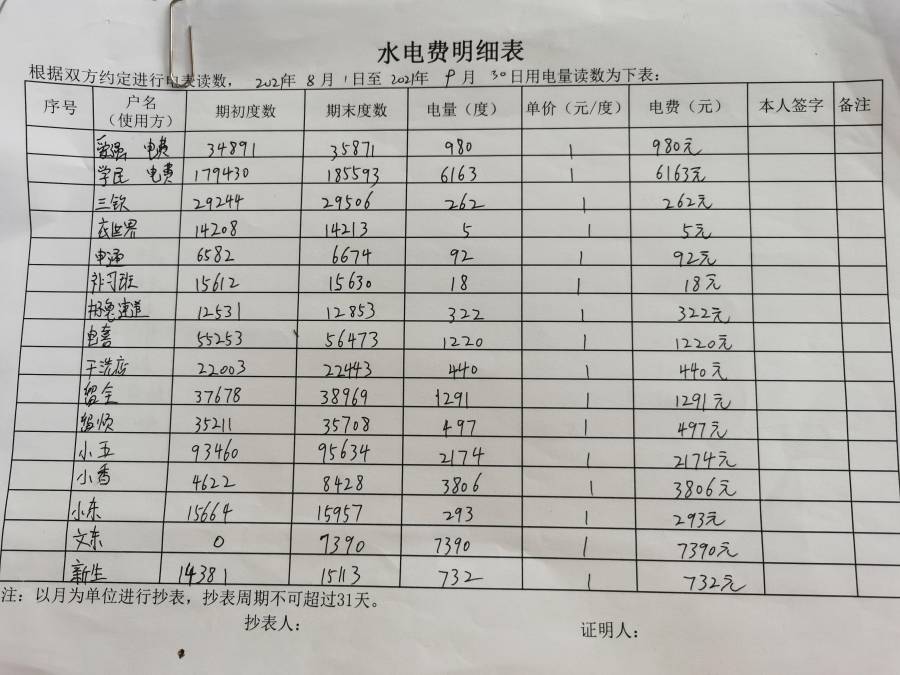 水电费明细表
根据双方约定进行电表读数， 2021年 8 月 1日至 2021年 9 月 30日用电量读数为下表：
序号 户名（使用方） 期初度数 期末度数 电量（度） 单价（元/度） 电费（元） 本人签字 备注
电费 34891 35871 980 1 980元
学民 电费 179430 185593 6163 1 6163元
三钦 29244 29506 262 1 262元
衣世界 14208 14213 5 1 5元
申通 6582 6674 92 1 92元
补习班 15612 15630 18 1 18元
12531 12853 322 1 322元
55253 56473 1220 1 1220元
干洗店 22003 22443 440 1 440元
留全 37678 38969 1291 1 1291元
35211 35708 497 1 497元
小五 93460 95634 2174 1 2174元
小香 4622 8428 3806 1 3806元
小东 15664 15957 293 1 293元
文东 0 7390 7390 1 7390元
新生 14381 15113 732 1 732元
注：以月为单位进行抄表，抄表周期不可超过31天。
抄表人： 证明人：